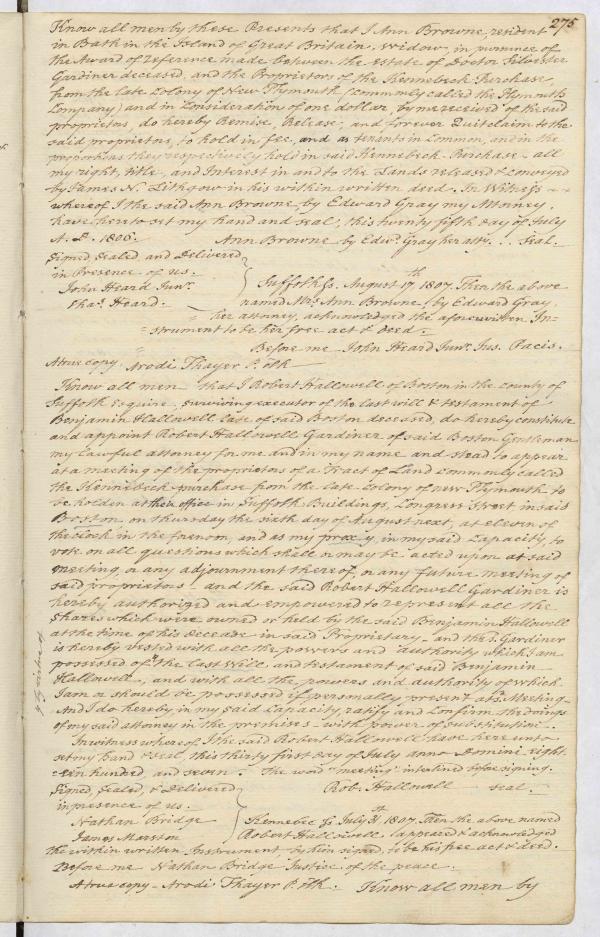 275
Know all men by these Presents that I Ann Browne, resident
in Bath in the Island of Great Britain, widow, in pursuance of
the Award of reference made between the estate of Doctor Silvester
Gardiner deceased, and the Proprietors of the Kennebeck Purchase,
from the late Colony of New Plymouth (commonly called the Plymouth
Company) and in Consideration of one dollar, by me received of the said
proprietors, do hereby Remise, Release, and forever Quitclaim to the
said proprietors, to hold in fee, and as tenants in Common, and in the
proportions they respectively hold in said Kennebeck Purchase - all
my right, title, and Interest in and to the Lands released & conveyed
by James N. Lithgow in his within written deed. In Witness
whereof I the said Ann Browne by Edward Gray my Attorney,
have hereto set my hand and seal, this twenty fifth day of July
A. D. 1806. Ann Browne by Edwd. Gray her atty... Seal.
Signed, Sealed and Delivered
in Presence of us.
John Heard Junr.
Chas. Heard.
Suffolk Ss. August 17th 1807. Then the above
named Mrs. Ann Browne (by Edward Gray,
her attorney, acknowledged the aforewritten In-
strument to be her free act & deed.
Before me John Heard Junr. Jus. Pacis.
A true copy. Arodi Thayer P. Clk
Know all men that I Robert Hallowell of Boston in the county of
Suffolk Esquire, surviving executor of the last will & testament of
Benjamin Hallowell late of said Boston deceased, do hereby constitute
and appoint Robert Hallowell Gardiner of said Boston Gentleman
my lawful attorney for me and in my name and stead to appear
at a meeting of the proprietors of a Tract of Land commonly called
the Kennebeck purchase from the late Colony of new Plymouth to
be holden at their office in Suffolk Buildings, Congress Street in said
Boston, on thursday the sixth day of August next, at eleven of
the clock in the forenoon, and as my proxy, in my said Capacity, to
vote on all questions which shall or may be acted upon at said
meeting, or any adjournment thereof, or any future meeting of
said proprietors - and the said Robert Hallowell Gardiner is
hereby authorized and empowered to represent all the
shares which were owned or held by the said Benjamin Hallowell
at the time of his decease in said Propriety - and the sd. Gardiner
is hereby vested with all the powers and authority which I am
possessed of
by virtue of
the Last Will and testament of said Benjamin
Hallowell, and with all the powers and authority of which
I am or should be possessed if personally present at sd. Meeting -
And I do hereby in my said Capacity ratify and Confirm the doings
of my said attorney in the premises - with power of Substitution -
In witness whereof I the said Robert Hallowell have here unto
set my hand & seal, this thirty first day of July anno Domini eight-
een hundred, and seven. The word "meeting" interlined before signing.
Signed, Sealed, & Delivered
in presence of us.
Rob. Hallowell seal.
Nathan Bridge
James Marston
Kennebec Ss July 31st 1807. Then the above named
Robert Hallowell, appeared & acknowledged
the within written Instrument by him signed, to be his free act & deed.
Before me Nathan Bridge Justice of the peace.
A true copy - Arodi Thayer P. Clk. Know all men by